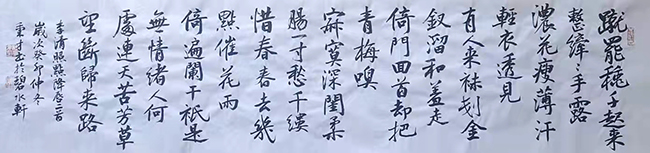 蹴罷秋千起來
整纖々手露
濃花瘦薄汗
輕衣透見
有人來袜剗金
釵溜和羞走
倚門回首却把
青梅嗅
寂寞深閨柔
腸一寸愁千縷
惜春春去幾
點催花雨
倚遍闌干祇是
無情緒人何
處連天苦芳草
望斷歸來路
李清照點降唇二首
歲次癸卯仲冬
重才書於碧水軒